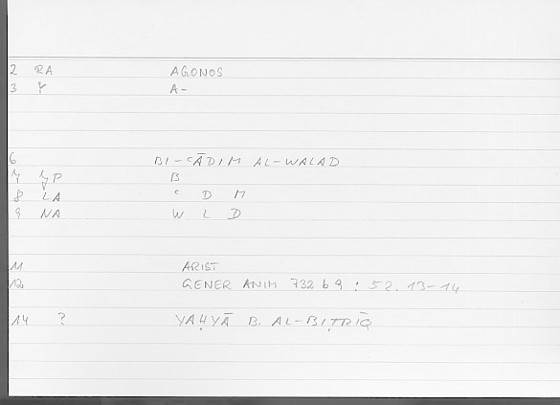 2 RA AGONOS
3 Y A-
6 BI-ʿĀDIM AL-WALAD
7 YP B
8 LA ʿ D M
9 NA W L D
11 ARIST
12 GENER ANIM 732 b 9 : 52. 13-14
14 ? YAḤYĀ B. AL-BIṬRĪQ